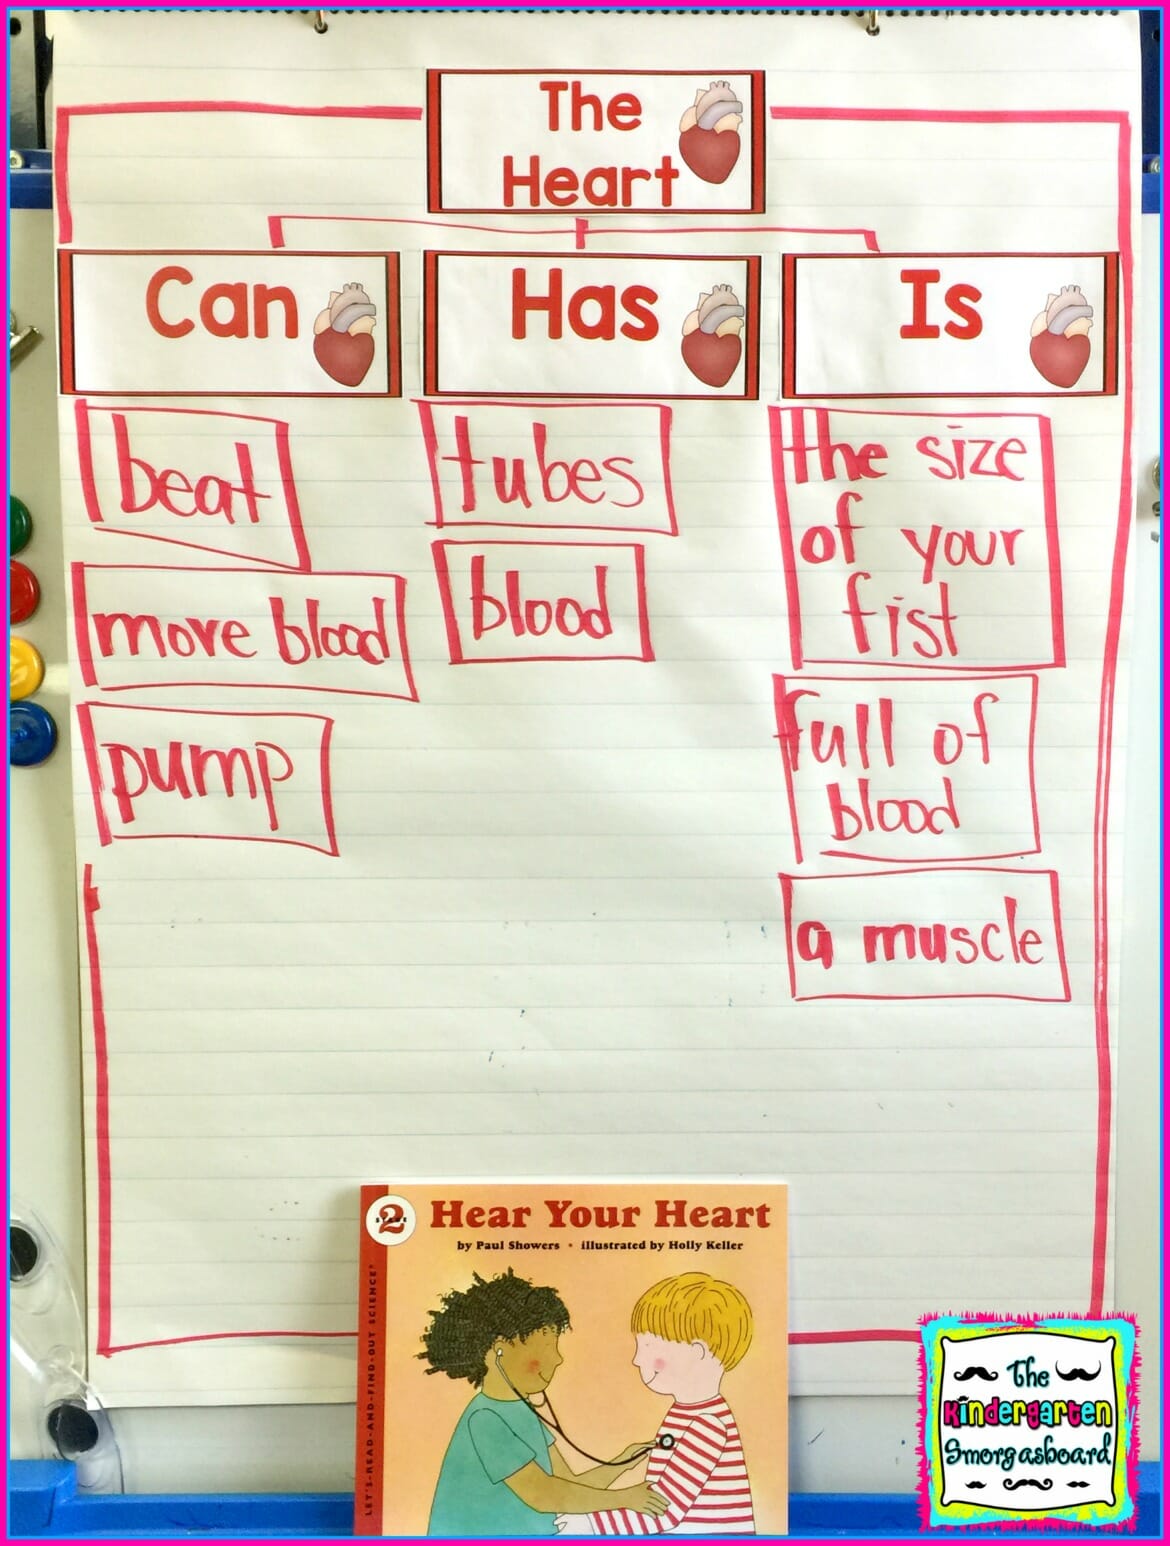 The
Heart
Can
Has
Is
beat
move blood
pump
tubes
blood
the size
of your
fist
full of
blood
a muscle
2
Hear Your Heart
by Paul Showers • illustrated by Holly Keller
LET'S-READ-AND-FIND-OUT SCIENCE®
The
Kindergarten
Smorgasboard